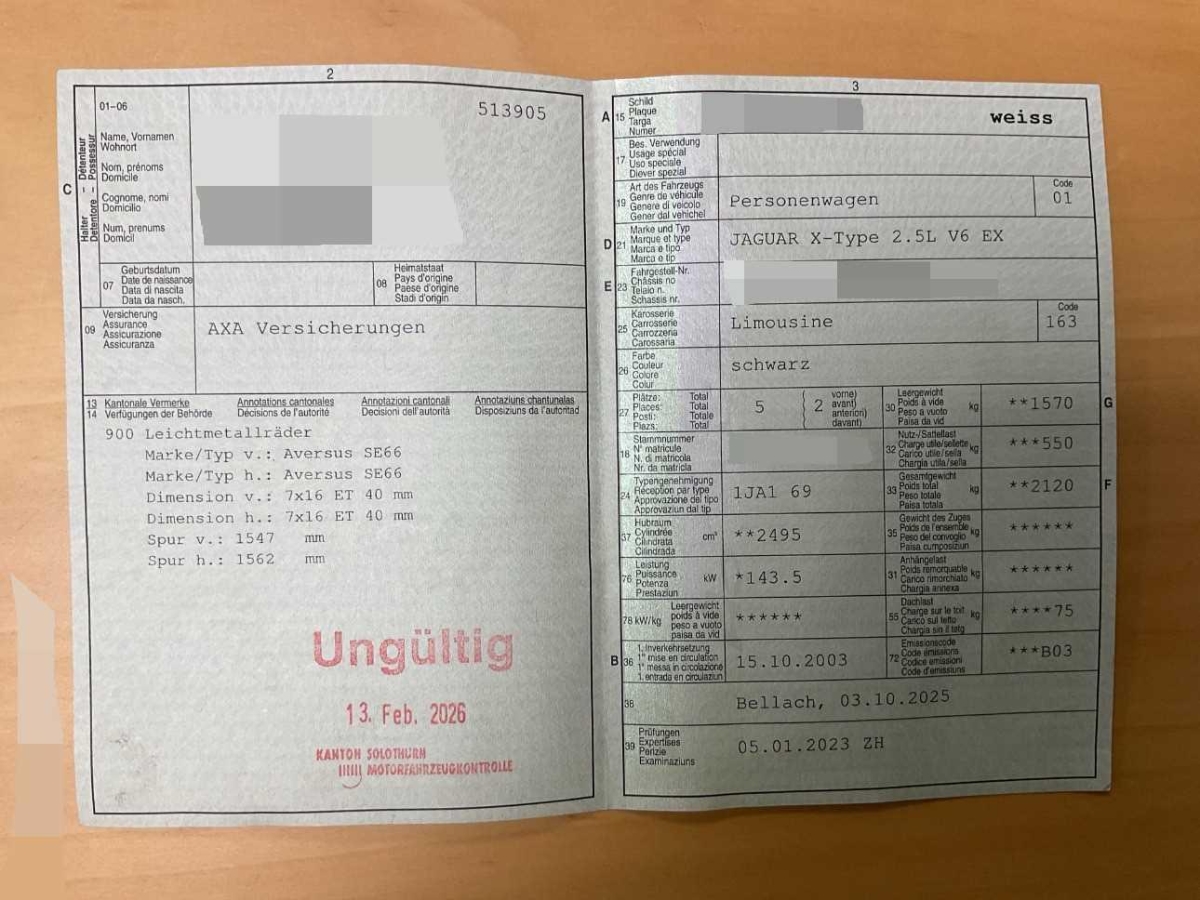 2
01-06
513905
C
Halter – Détenteur
Detentore – Possessur
Name, Vornamen
Wohnort
Nom, prénoms
Domicile
Cognome, nomi
Domicilio
Num, prenums
Domicil
07
Geburtsdatum
Date de naissance
Data di nascita
Data da nasch.
08
Heimatstaat
Pays d'origine
Paese d'origine
Stadi d'origin
09
Versicherung
Assurance
Assicurazione
Assicuranza
AXA Versicherungen
13 Kantonale Vermerke Annotations cantonales Annotazioni cantonali Annotaziuns chantunalas
14 Verfügungen der Behörde Décisions de l'autorité Decisioni dell'autorità Disposiziuns da l'autoritad
900 Leichtmetallräder
Marke/Typ v.: Aversus SE66
Marke/Typ h.: Aversus SE66
Dimension v.: 7x16 ET 40 mm
Dimension h.: 7x16 ET 40 mm
Spur v.: 1547 mm
Spur h.: 1562 mm
Ungültig
13. Feb. 2026
KANTON SOLOTHURN
MOTORFAHRZEUGKONTROLLE
3
A 15
Schild
Plaque
Targa
Numer
weiss
17
Bes. Verwendung
Usage spécial
Uso speciale
Diever spezial
19
Art des Fahrzeugs
Genre de véhicule
Genere di veicolo
Gener dal vehichel
Personenwagen
Code
01
D 21
Marke und Typ
Marque et type
Marca e tipo
Marca e tip
JAGUAR X-Type 2.5L V6 EX
E 23
Fahrgestell-Nr.
Châssis no
Telaio n.
Schassis nr.
25
Karosserie
Carrosserie
Carrozzeria
Carossaria
Limousine
Code
163
26
Farbe
Couleur
Colore
Colur
schwarz
27
Plätze: Total
Places: Total
Posti: Totale
Plazs: Total
5
2
vorne)
avant)
anteriori)
davant)
30
Leergewicht
Poids à vide
Peso a vuoto
Paisa da vid
kg
**1570
G
18
Stammnummer
N° matricule
N. di matricola
Nr. da matricla
32
Nutz-/Sattellast
Charge utile/sellette
Carico utile/sella
Chargia utila/sella
kg
***550
24
Typengenehmigung
Réception par type
Approvazione del tipo
Approvaziun dal tip
1JA1 69
33
Gesamtgewicht
Poids total
Peso totale
Paisa totala
kg
**2120
F
37
Hubraum
Cylindrée
Cilindrata
Cilindrada
cm³
**2495
35
Gewicht des Zuges
Poids de l'ensemble
Peso del convoglio
Paisa cumposiziun
kg
******
76
Leistung
Puissance
Potenza
Prestaziun
kW
*143.5
31
Anhängelast
Poids remorquable
Carico rimorchiato
Chargia annexa
kg
******
78 kW/kg
Leergewicht
poids à vide
peso a vuoto
paisa da vid
******
55
Dachlast
Charge sur le toit
Carico sul tetto
Chargia sin il tetg
kg
****75
B 36
1. Inverkehrsetzung
1re mise en circulation
1a messa in circolazione
1. entrada en circulaziun
15.10.2003
72
Emissionscode
Code émissions
Codice emissioni
Code d'emissiuns
***B03
38
Bellach, 03.10.2025
39
Prüfungen
Expertises
Perizie
Examinaziuns
05.01.2023 ZH